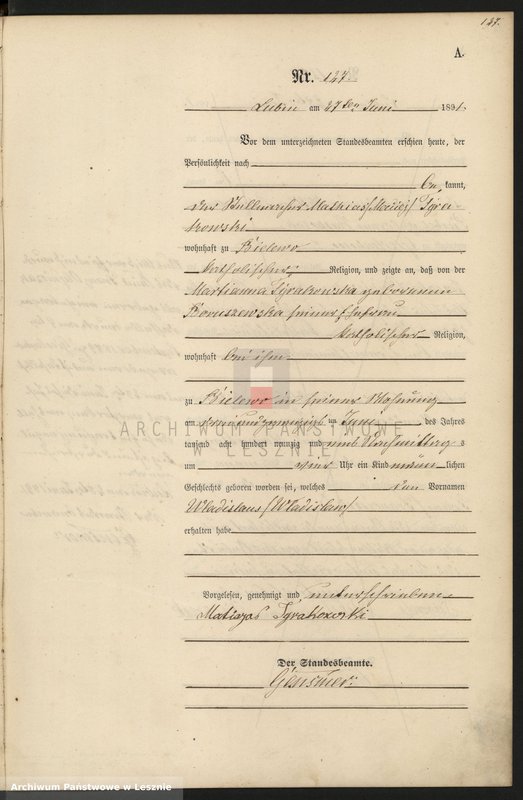 127.
A.
Nr. 127
Lubin am 27ten Juni 1891.
Vor dem unterzeichneten Standesbeamten erschien heute, der
Persönlichkeit nach
be kannt,
der Stellmacher Mathias /Maciej/ Igra-
kowski
wohnhaft zu Bielewo
katholischer Religion, und zeigte an, daß von der
Marianna Igrakowska geborenen
Boruszewska seiner Ehefrau
katholischer Religion,
wohnhaft bei ihm
zu Bielewo in seiner Wohnung
am im Juni des Jahres
tausend acht hundert neunzig und eins Nachmittag s
um vier Uhr ein Kind männ lichen
Geschlechts geboren worden sei, welches den Vornamen
Wladislaus /Wladislaw/
erhalten habe
Vorgelesen, genehmigt und unterschrieben
Matiyas Igrakowski
Der Standesbeamte.
ARCHIWUM PAŃSTWOWE
W LESZNIE
Archiwum Państwowe w Lesznie